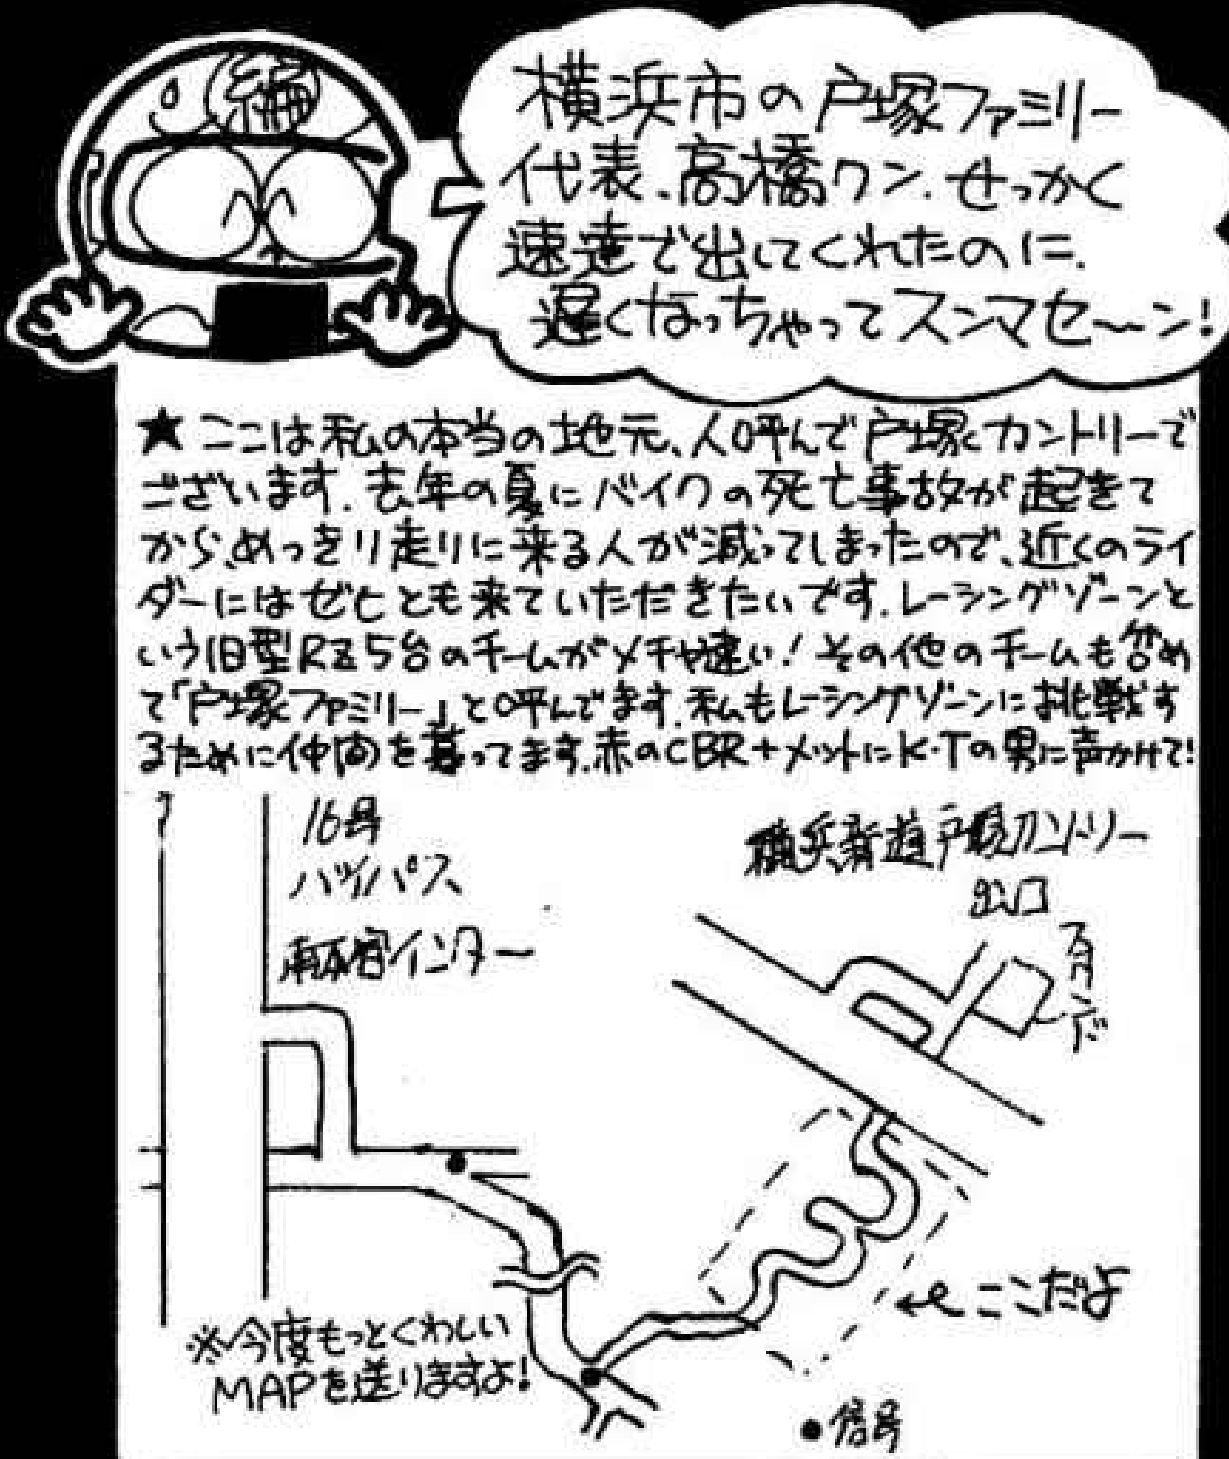 編
横浜市の戸塚ファミリー
代表、高橋クン。せっかく
速達で出してくれたのに、
遅くなっちゃってスンマセ〜ン!
★ここは私の本当の地元、人呼んで戸塚カントリーで
ございます。去年の夏にバイクの死亡事故が起きて
から、めっきり走りに来る人が減ってしまったので、近くのライ
ダーにはゼヒとも来ていただきたいです。レーシングゾーンと
いう旧型RZ5台のチームがメチャ速い!その他のチームも含め
て「戸塚ファミリー」と呼んでます。私もレーシングゾーンに挑戦す
るために仲間を募ってます。赤のCBR+メットにK・Tの男に声かけて!
16号
バイパス
南本宿インター
横浜新道戸塚カントリー
出口
←ここだよ
※今度もっとくわしい
MAPを送りますよ!
●信号